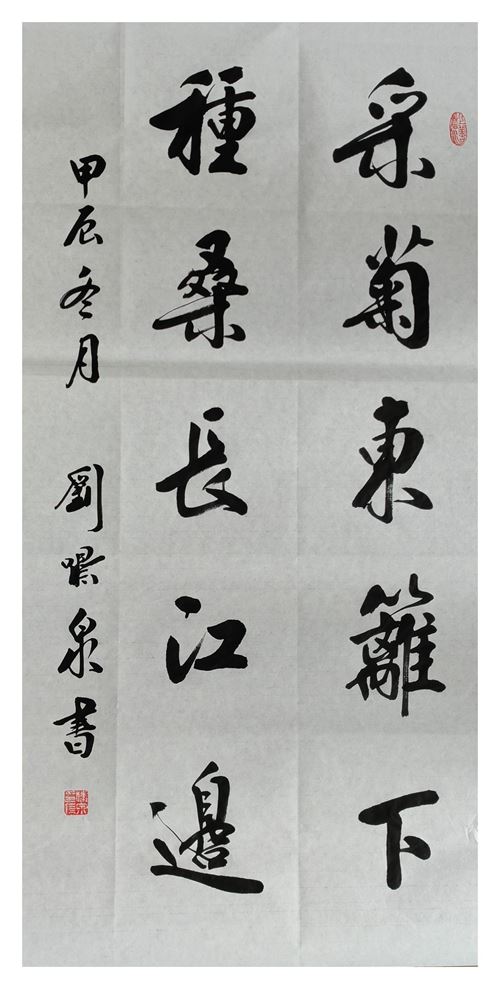 采菊東籬下
種桑長江邊
甲辰冬月 劉喋泉書